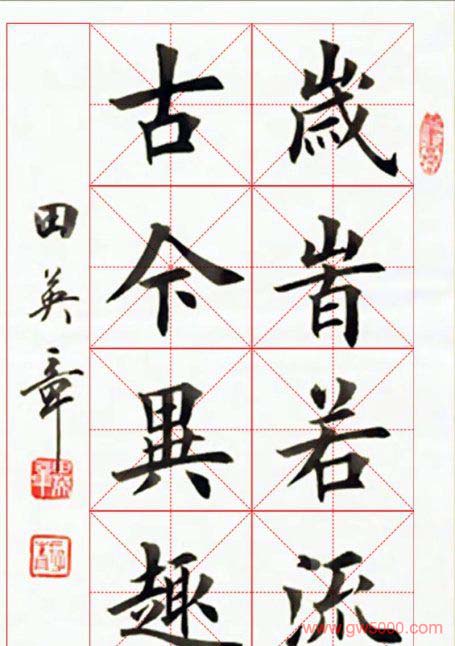 歲旹若流
古今異趣
田英章
www.gw5000.com